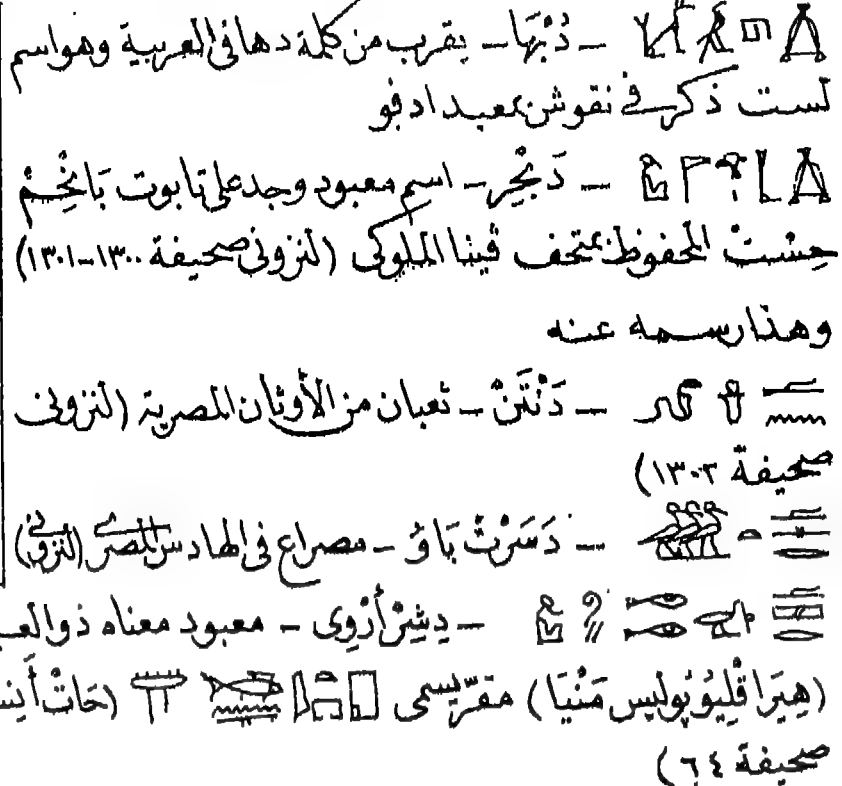 ـ دُبْهَا ـ يقرب من كلمة دها فى العربية وهو اسم
لست ذكر فى نقوش بمعبد ادفو
ـ دَبْخِر ـ اسم معبود وجد على تابوت بَانْخِمْ
حِسِتْ المحفوظ بمتحف ڤينا الملوكى (لنزونى صحيفة ١٣٠٠ـ١٣٠١)
وهذا رسمه عنه
ـ دَنْتَنْ ـ ثعبان من الأوثان المصرية (لنزونى
صحيفة ١٣٠٢)
ـ دَسَرْتْ بَاوُ ـ مصراع فى الهادس المصرى (لنزونى)
ـ دِشِرْ أَرْوِى ـ معبود معناه ذو
(هِيَرَاقْلِيُوپُوليس مَنْيَا) مقرّ يسمى (حَاتْ
صحيفة ٦٤)